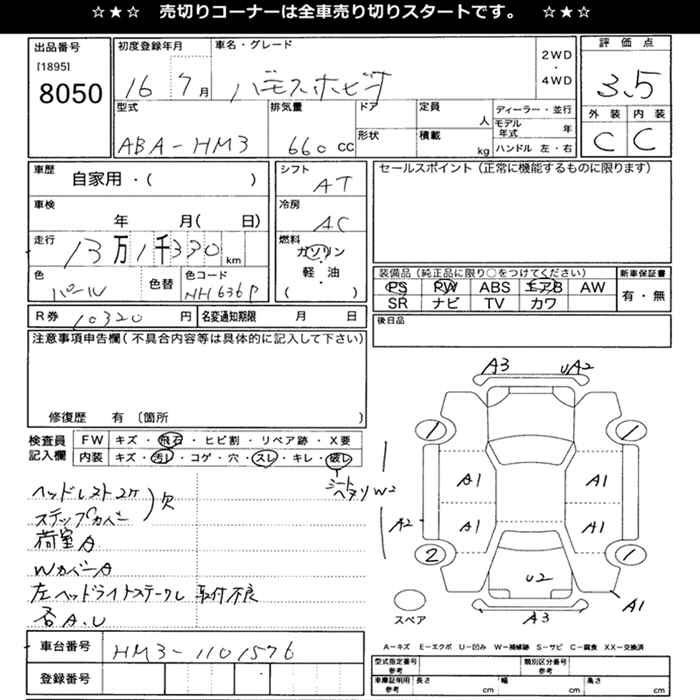 ☆★☆ 売切りコーナーは全車売り切りスタートです。 ☆★☆
出品番号
[1895]
8050
初度登録年月
16 7月
車名・グレード
バモスホビオ
2WD
・
4WD
評価点
3.5
外装 内装
C C
型式
ABA-HM3
排気量
660 cc
ドア
形状
定員
人
積載
kg
ディーラー・並行
モデル年式 年
ハンドル 左・右
車歴
自家用・( )
車検
年 月( 日)
走行
13万1千330km
色
パール
色替
色コード
NH636P
シフト
AT
冷房
AC
燃料
ガソリン
・
軽・油
( )
セールスポイント(正常に機能するものに限ります)
装備品(純正品に限り○をつけてください)
PS PW ABS エアB AW
SR ナビ TV カワ
新車保証書
有・無
R券 10320 円
名変通知期限 月 日
後日品
注意事項申告欄(不具合内容等は具体的に記入して下さい)
修復歴 有 〔箇所 〕
検査員記入欄
FW キズ・飛石・ヒビ割・リペア跡・X要
内装 キズ・汚れ・コゲ・穴・スレ・キレ・破レ
シートヘタリ W2
ヘッドレスト2ケ
ステップカバー
欠
荷室A
WカバーA
左ヘッドライトステークレ 取付不良
各A.U
A3 UA2
1 1
A1 A1
A2 A1 A1
2 1
U2
A1
A3
スペア
車台番号 HM3-1101576
登録番号
A-キズ E-エクボ U-凹み W-補修跡 S-サビ C-腐食 XX-交換済
型式指定番号 参考
類別区分番号 参考
車庫証明用 参考
長さ cm
幅 cm
高さ cm